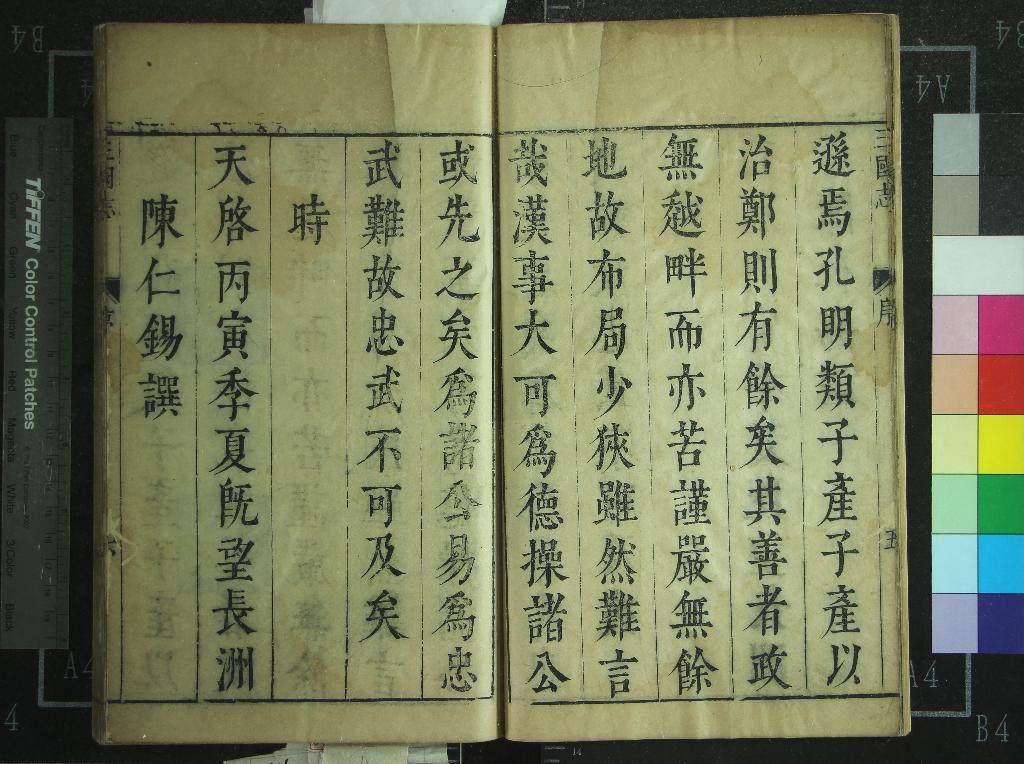 三國志
序
五
遜焉孔明類子產子產以
治鄭則有餘矣其善者政
無越畔而亦苦謹嚴無餘
地故布局少狹雖然難言
哉漢事大可為德操諸公
或先之矣為諸公易為忠
武難故忠武不可及矣
時
天啓丙寅季夏旣望長洲
陳仁錫譔
三國志
序
六
TIFFEN Color Control Patches
Blue
Cyan
Green
Yellow
Red
Magenta
White
3/Color
Black
B4
A4
A4
B4